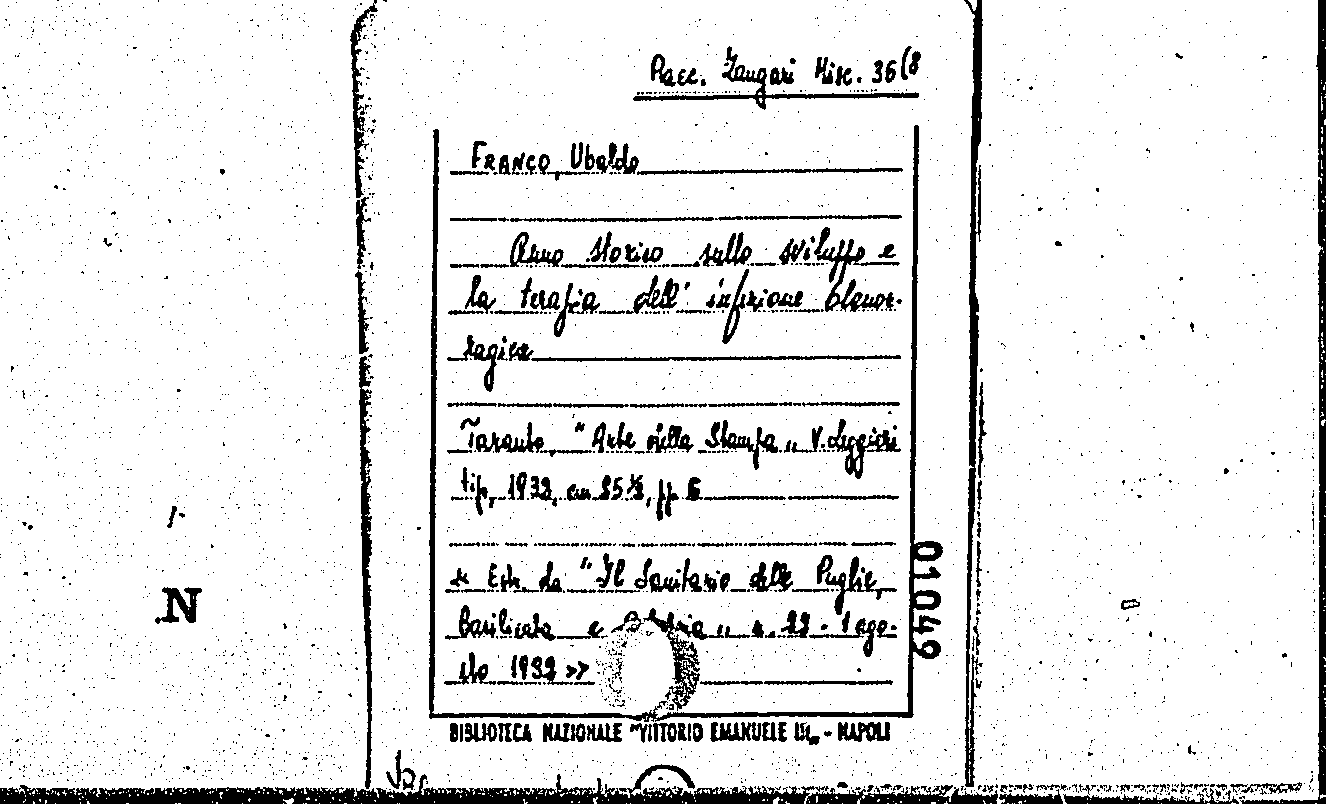 Racc. Zangari Misc. 36(8
FRANCO, Ubaldo
storico sullo sviluppo e
la terapia dell' infezione blenor-
ragica
Taranto, "Arte della Stampa„ V. Leggieri
tip., 1932, cm 25½, pp. 6
« Estr. da "Il Sanitario delle Puglie,
Basilicata e „ n. 22 - 1 ago-
sto 1932 »
01049
.N
BIBLIOTECA NAZIONALE "VITTORIO EMANUELE III„ - NAPOLI